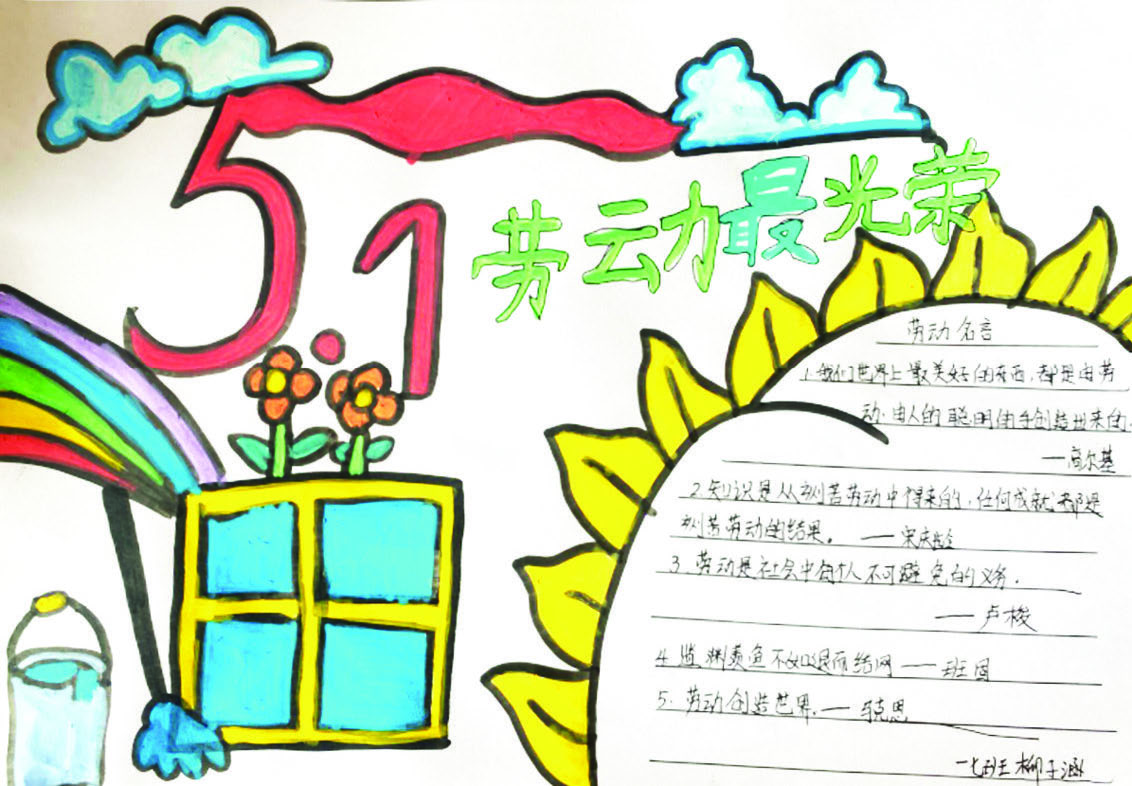 5.1
劳动最光荣
劳动名言
1.我们世界上最美好的东西,都是由劳
动.由人的聪明的手创造出来的.
——高尔基
2.知识是从刻苦劳动中得来的,任何成就都是
刻苦劳动的结果。——宋庆龄
3.劳动是社会中每个人不可避免的义务.
——卢梭
4.监渊羡鱼不如退而结网——班固
5.劳动创造世界.——马克思
一七班 柳子涵